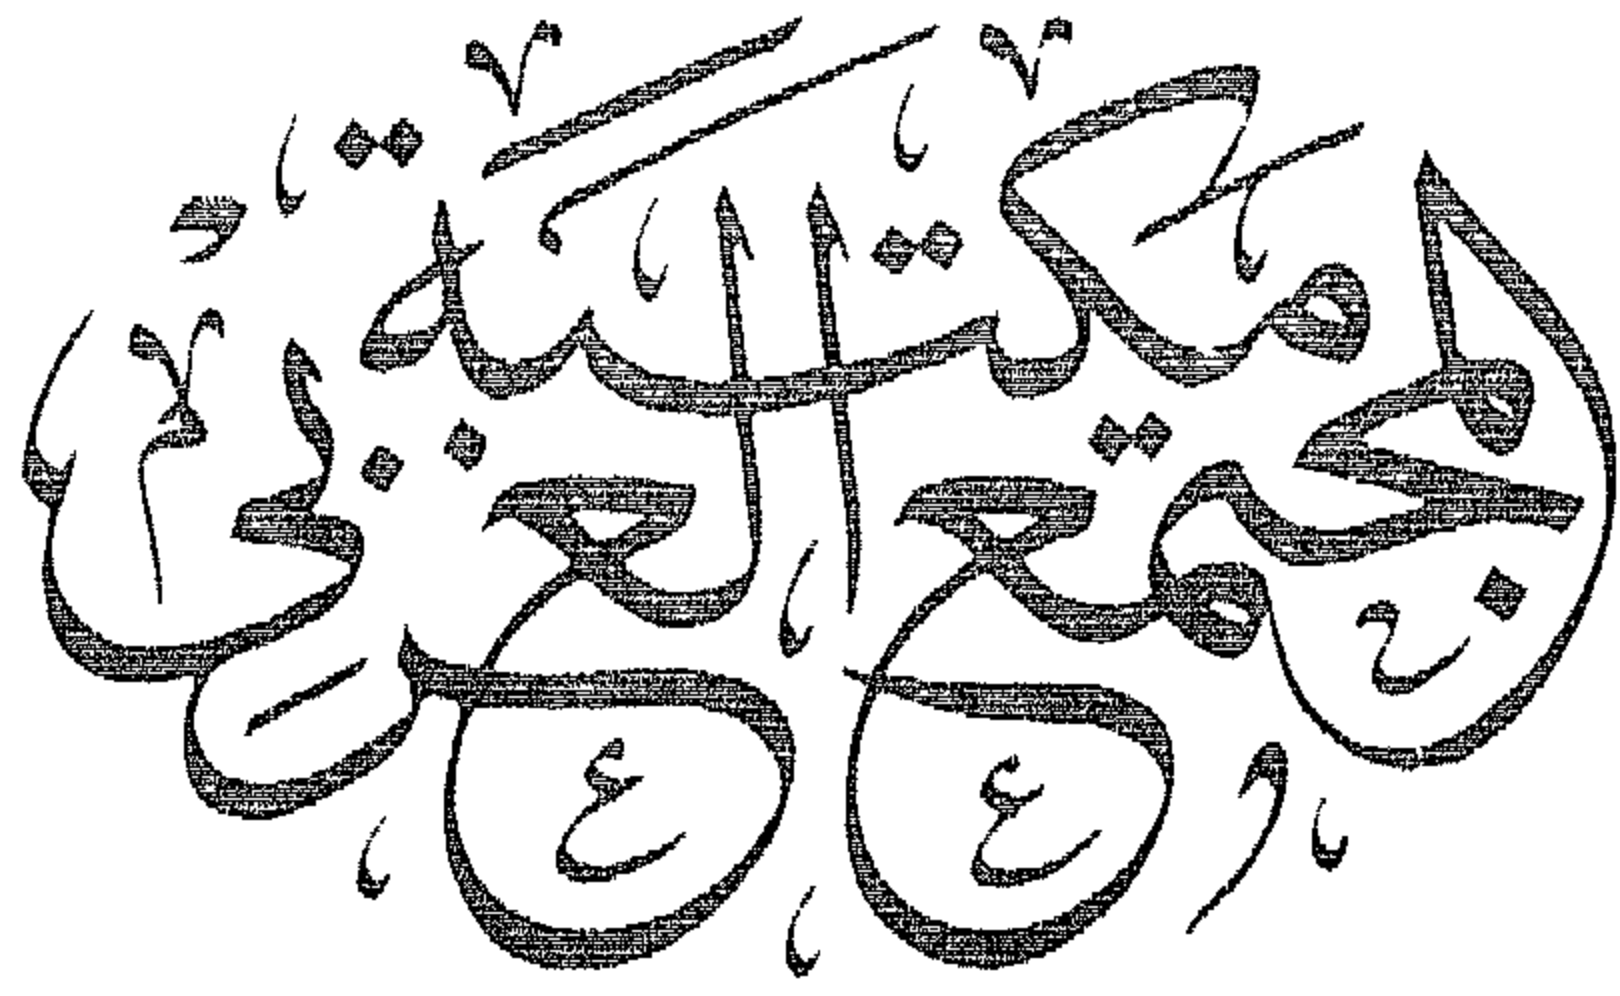 مكتبة المجتمع العربي